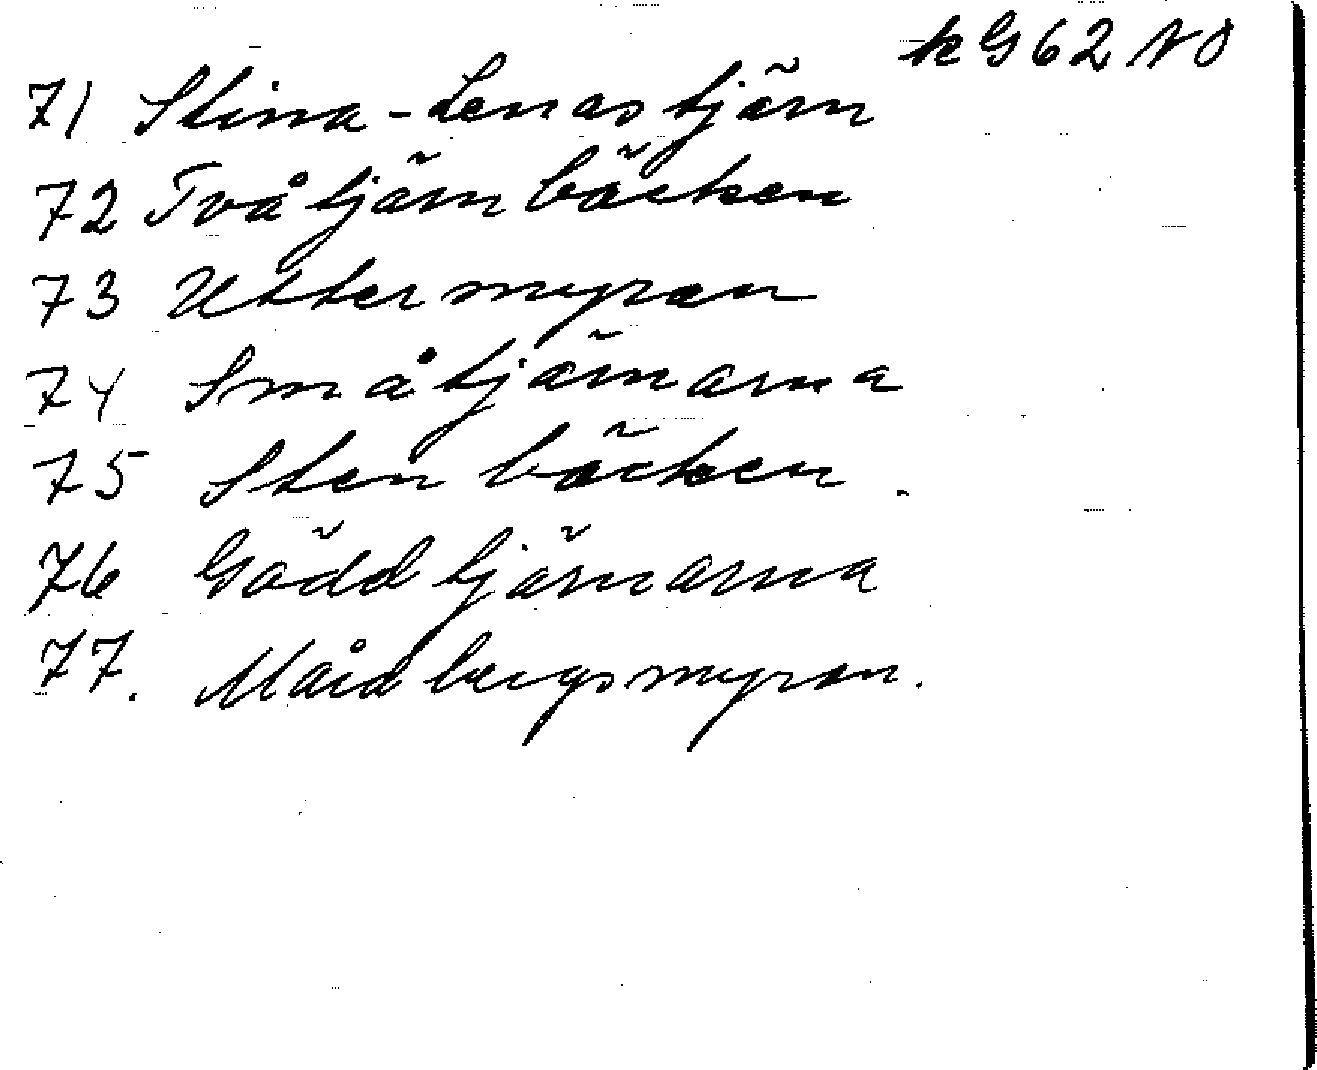 kG62 NO
71 Stina-Lenastjärn
72 Två tjärnbäcken
73 Uttermyran
74 Småtjärnarna
75 Stenbäcken.
76 Gäddtjärnarna
77. Mårdbergsmyran.